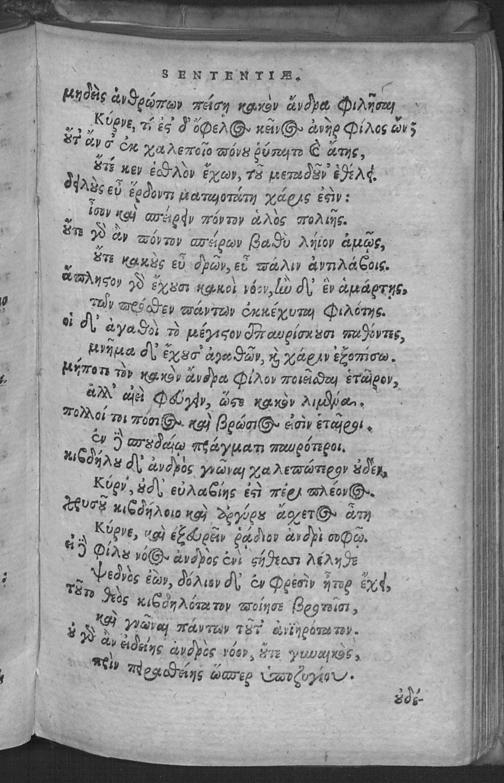 SENTENTIÆ.
μηδεὶς ἀνθρώπων πείσῃ κακὸν ἄνδρα φιλῆσαι
Κύρνε, τί ἐς δ' ὄφελος κεῖνος ἀνὴρ φίλος ὤν;
οὔτ' ἄν σ' ἐκ χαλεποῖο πόνου ῥύσαιτο καὶ ἄτης,
οὔτέ κεν ἐσθλὸν ἔχων, τοῦ μεταδοῦν' ἐθέλει.
δειλοὺς εὖ ἔρδοντι ματαιοτάτη χάρις ἐστίν:
ἶσον καὶ σπείρειν πόντον ἁλὸς πολιῆς.
οὔτε γὸ ἂν πόντον σπείρων βαθὺ λήϊον ἀμῷς,
οὔτε κακοὺς εὖ δρῶν, εὖ πάλιν ἀντιλάβοις.
ἄπληστον γὸ ἔχουσι κακοὶ νόον, ἢν δ' ἓν ἁμάρτῃς,
τῶν πρόσθεν πάντων ἐκκέχυται φιλότης.
οἱ δ' ἀγαθοὶ τὸ μέγιστον ἐπαυρίσκουσι παθόντες,
μνῆμα δ' ἔχουσ' ἀγαθῶν, καὶ χάριν ἐξοπίσω.
μήποτε τὸν κακὸν ἄνδρα φίλον ποιεῖσθαι ἑταῖρον,
ἀλλ' αἰεὶ φεύγειν, ὥστε κακὸν λιμένα.
πολλοί τοι πόσιος καὶ βρώσιός εἰσιν ἑταῖροι.
ἐν δὲ σπουδαίῳ πράγματι παυρότεροι.
κιβδήλου δ' ἀνδρὸς γνῶναι χαλεπώτερον οὐδὲν,
Κύρν', οὐδ' εὐλαβίης ἐστὶ πέρι πλέονος.
χρυσοῦ κιβδήλοιο καὶ ἀργύρου ἄσχετος ἄτη
Κύρνε, καὶ ἐξευρεῖν ῥᾴδιον ἀνδρὶ σοφῷ.
εἰ δὲ φίλου νόος ἀνδρὸς ἐνὶ στήθεσσι λελήθε
ψεδνὸς ἐὼν, δόλιον δ' ἐν φρεσὶν ἦτορ ἔχει,
τοῦτο θεὸς κιβδηλότατον ποίησε βροτοῖσι,
καὶ γνῶναι πάντων τοῦτ' ἀνιηρότατον.
οὐ γὸ ἂν εἰδείης ἀνδρὸς νόον, οὔτε γυναικὸς,
πρὶν πειραθείης ὥσπερ ὑποζυγίου.
οὐδέ-